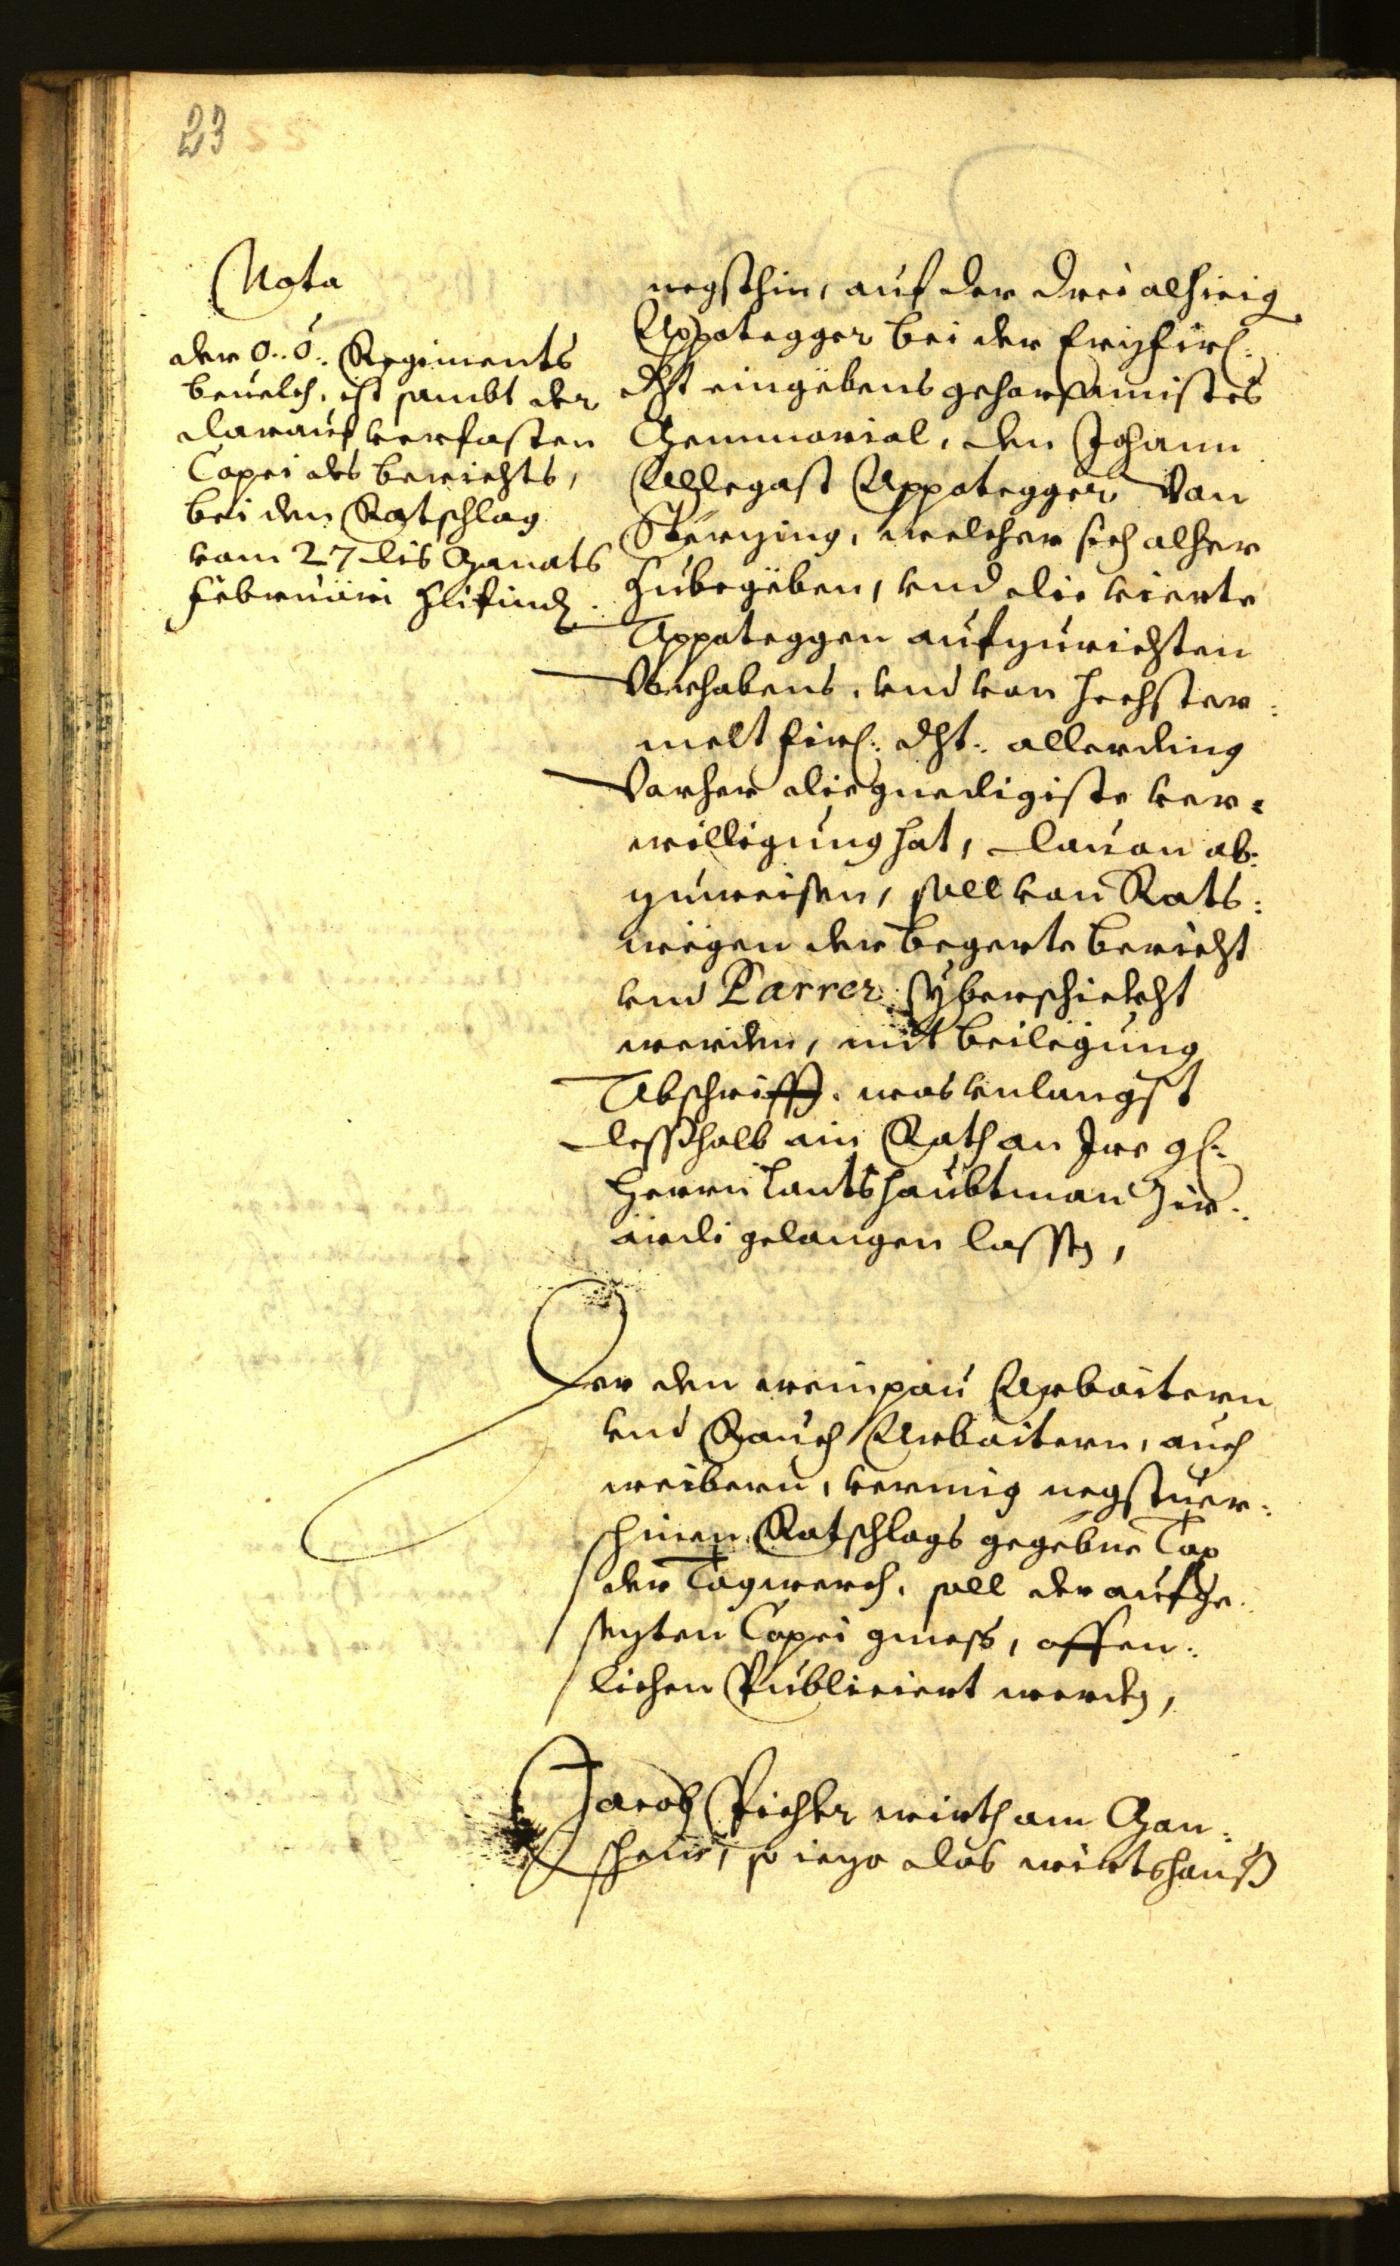 23
Nota
der O: Ö: Regiments
beuelch, ist sambt der
darauf verfasten
Copei des berichts,
bei den Ratschlag
vom 27 dis Monats
Februarii zufindn.
negsthin, auf der drei alhieig
Appotegger bei der Erzfirl:
dht eingebens gehorsamistes
Memmorial, den Johann
Allegast Appotegger von
Sterzing, welcher sich alher
zubegeben, vnd die vierte
Appoteggen aufzurichten
Vorhabens, vnd von hechster-
melt firl: dht: allerding
Vorher die gnedigiste ver-
willigung hat, dauon ab-
zuweisen, soll von Rats-
wegen der begerte bericht
vnd Parrer yberschickht
werden, mit beilegung
Abschrifft, was vnlangst
desshalb ain Rath an Ire gl:
Herrn Lantshaubtman
gelangen lassen,
Der den weinpau Arbaitern
vnd Rauch Arbaitern, auch
weibern, vermig negstuer-
schinen Ratschlags gegebne Tax
der Tagwerch, soll der aufge-
sezten Copei gmess, offen-
lichen Publiciert werden,
Jacob Pichler wirth am Mon-
schein, so iezo das wirtshauß